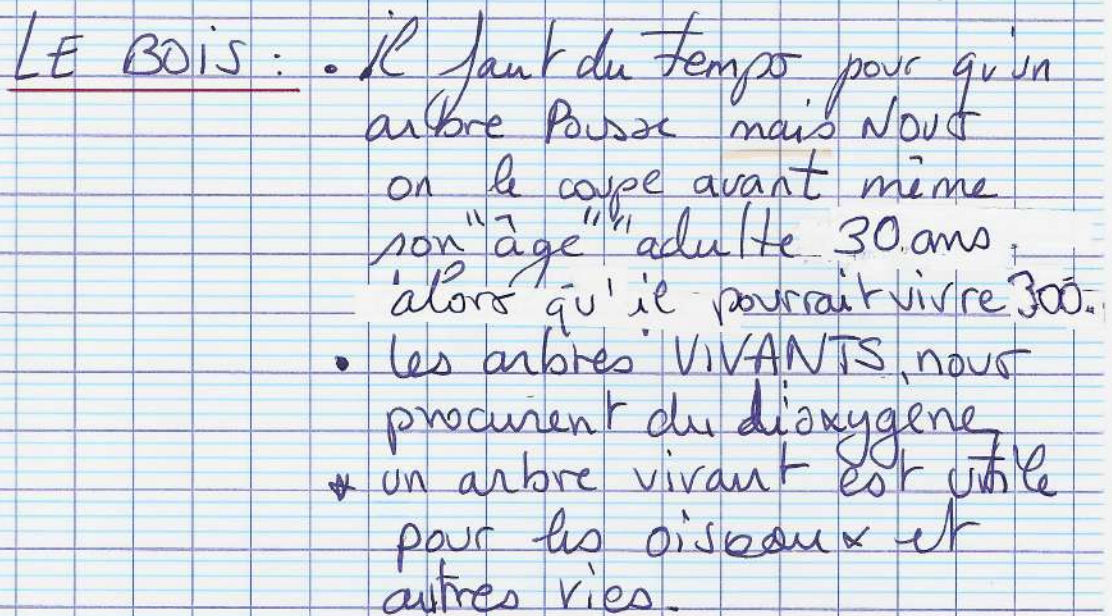 LE BOIS : • il faut du temps pour qu'un
arbre Pousse mais Nous
on le coupe avant même
son "âge" "adulte 30 ans.
alors qu'il pourrait vivre 300.
• les arbres VIVANTS, nous
procurent du dioxygène
* un arbre vivant est utile
pour les oiseaux et
autres vies.